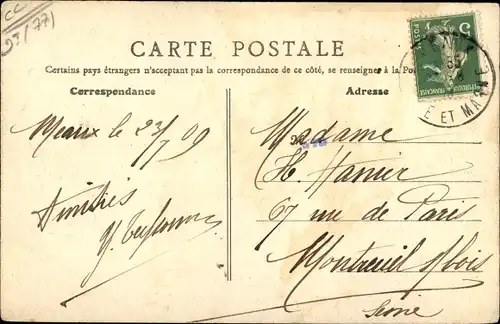 CC
93(77)
CARTE POSTALE
Certains pays étrangers n'acceptant pas la correspondance de ce côté, se renseigner à la
Correspondance
Adresse
5
POSTES
E ET MARNE
Meaux le 23/7 09
Amitiés
Madame
H. Hanier
67 rue de Paris
Montreuil s/bois
Seine